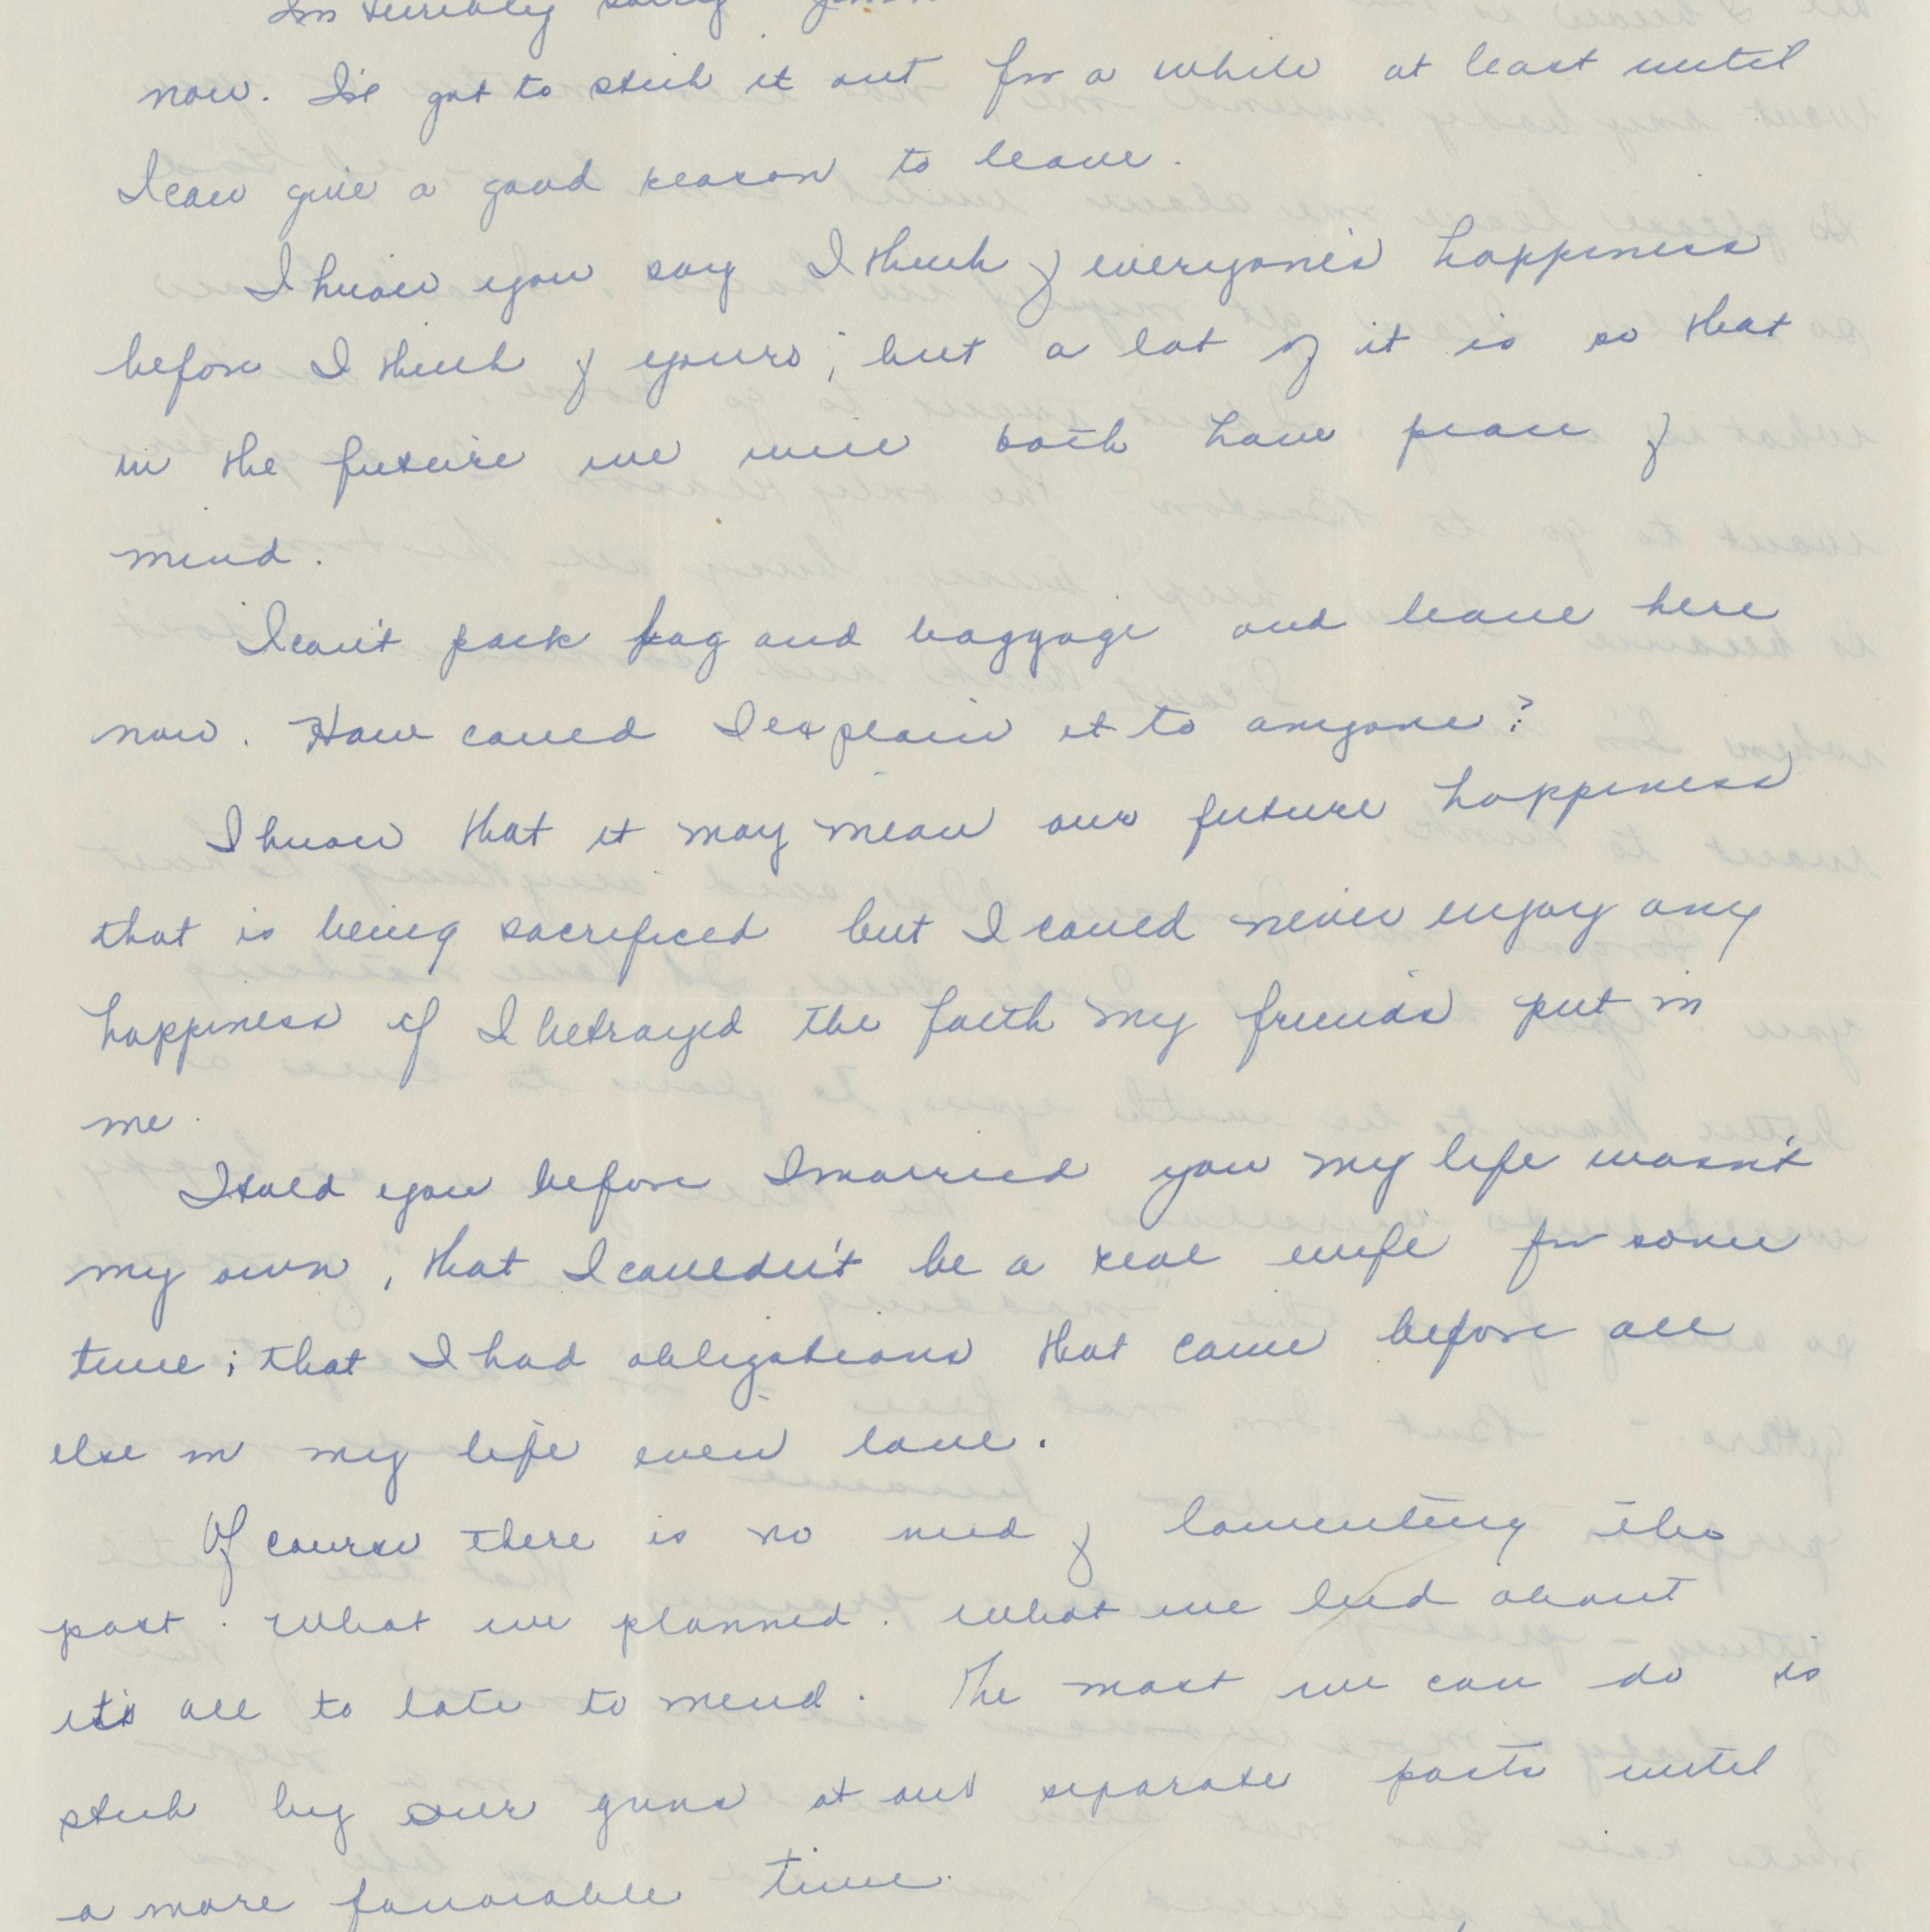 Im terribly sorry
now. I've got to stick it out for a while at least until
I can give a good reason to leave.
I know you say I think of everyone's happiness
before I think of yours; but a lot of it is so that
in the future we will both have peace of
mind.
I can't pack bag and baggage and leave here
now. How could I explain it to anyone?
I know that it may mean our future happiness
that is being sacrificed but I could never enjoy any
happiness if I betrayed the faith my friends put in
me.
I told you before I married you my life wasn't
my own, that I couldn't be a real wife for some
time; that I had obligations that came before all
else in my life even love.
Of course there is no need of lamenting the
past. What we planned. What we lied about
it's all to late to mend. The most we can do is
stick by our guns at our separate posts until
a more favorable time.